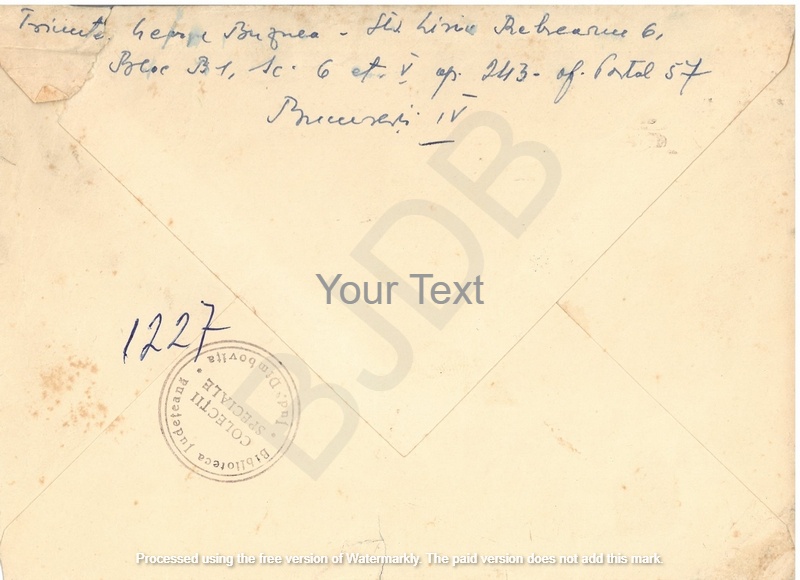 Trimite: George Buznea - Str. Liviu Rebreanu 6,
Bloc B1, Sc. 6 et. V ap. 243 - of. Postal 57
București IV
BJDB
Your Text
1227
Biblioteca Județeană • Jud. Dîmbovița •
COLECȚII
SPECIALE
Processed using the free version of Watermarkly. The paid version does not add this mark.